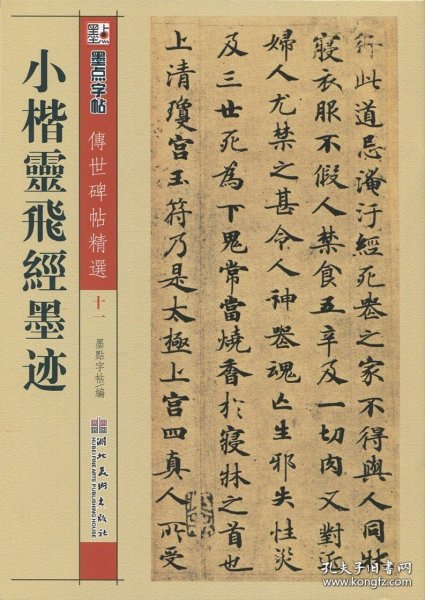 墨点
墨点字帖
傳世碑帖精選
十一
墨點字帖/編
湖北美術出版社
HUBEI FINE ARTS PUBLISHING HOUSE
小楷靈飛經墨迹
行此道忌淹汙經死喪之家不得與人同牀
寢衣服不假人禁食五辛及一切肉又對近
婦人尤禁之甚令人神喪魂亡生邪失性災
及三世死為下鬼常當燒香於寢牀之首也
上清瓊宮玉符乃是太極上宮四真人所受
孔夫子旧书网
www.kongfz.com